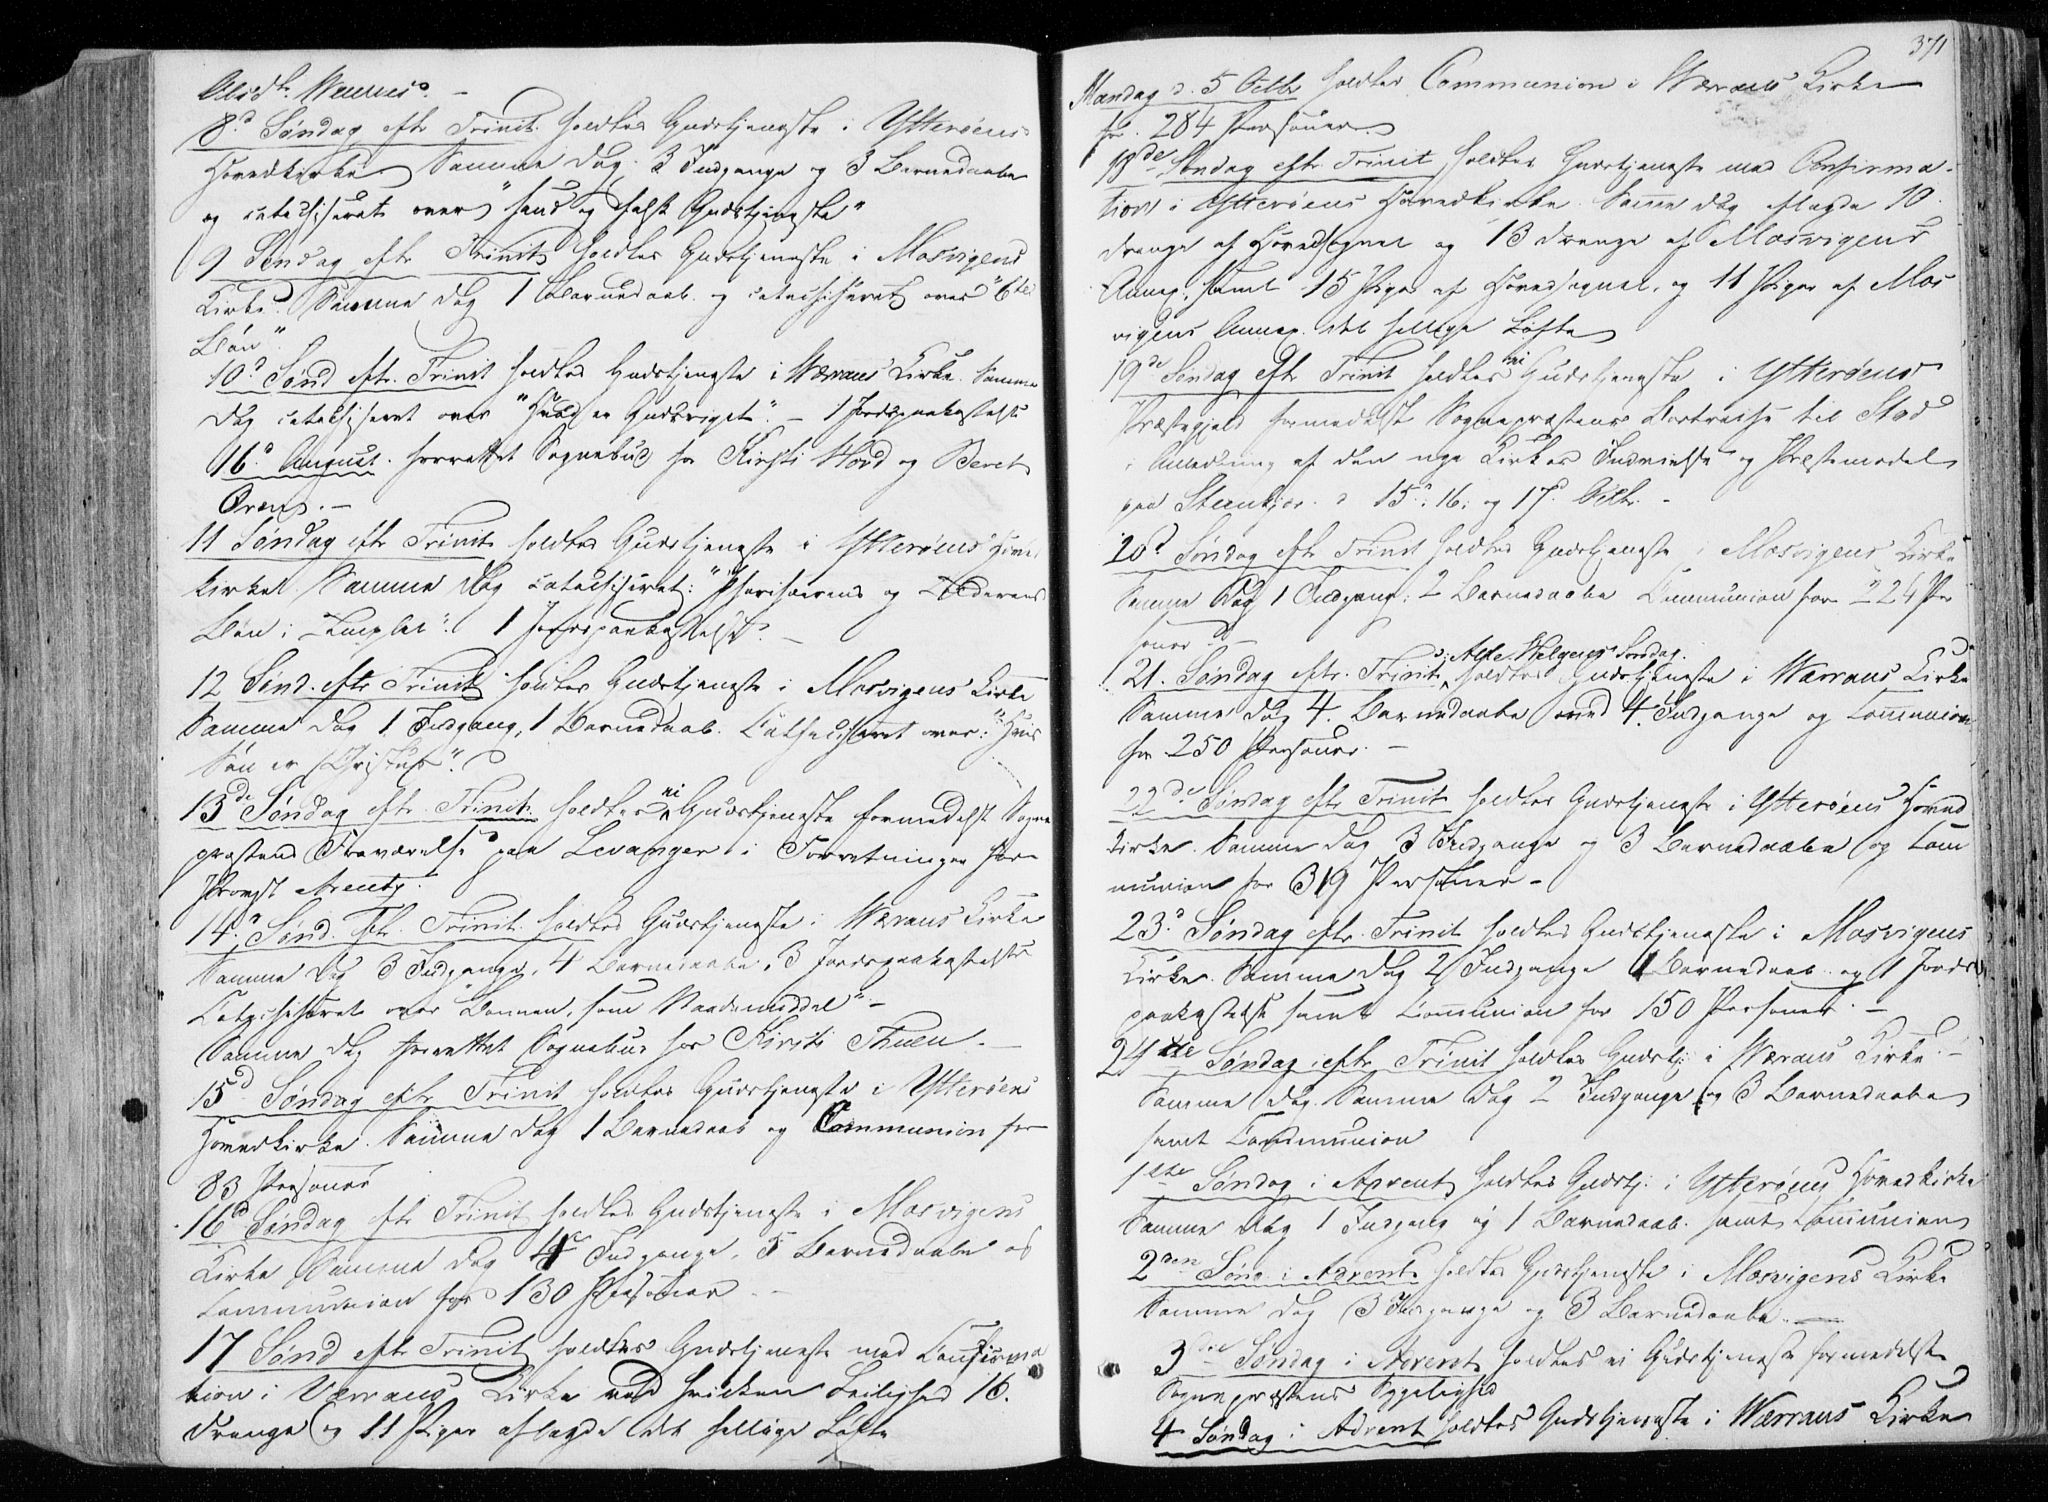 8d Søndag eftr Trinit. holdtes Gudstjeneste i Ytterøens
Hovedkirke Samme Dag 3 Indgange og 3 Barnedaabe
og catechiseret over "sand og falsk Gudstjeneste"
9 Søndag eftr Trinit holdtes Gudstjeneste i Mosvigens
Kirke. Samme Dag 1 Barnedaab og catechiseret over "6te
Bøn".
10d Sønd eftr. Trinit holdtes Gudstjeneste i Værrans Kirke. Samme
Dag catechiseret over "Hvad er Gudsriget". – 1 Jordspaakastelse
16d August. forrettet Sognebud for Kirsti Hovd og Beret
11 Søndag eftr Trinit holdtes Gudstjeneste i Ytterøens Hoved
kirke. Samme Dag catechiseret: "Pharisæerens og Tolderens
Bøn i Templet". 1 Jordspaakastelse. –
12 Sønd. eftr Trinit holdtes Gudstjeneste i Mosvigens Kirke
Samme Dag 1 Indgang, 1 Barnedaab. Catheciseret over: "Hvis
Søn er Christus".
13de Søndag eftr Trinit. holdtes ei Gudstjeneste formedelst Sogne
præstens Fraværelse paa Levanger i Forretninger for
Provst Arentz.
14. Sønd. eftr. Trinit. holdtes Gudstjeneste i Værrans Kirke
Samme Dag 3 Indgange, 4 Barnedaabe, 3 Jordspaakastelse
Catechiseret over "Bønnen, som Naademiddel" –
Samme Dag forrettet Sognebud for Kirsti Thuen. –
15d Søndag eftr Trinit holdtes Gudstjeneste i Ytterøens
Hovedkirke. Samme Dag 1 Barnedaab og Communion for
83 Personer
16d Søndag eftr Trinit holdtes Gudstjeneste i Mosvigens
Kirke Samme Dag 4 Indgange, 5 Barnedaabe og
Communion for 130 Personer –
17 Sønd eftr Trinit holdtes Gudstjeneste med Confirma
tion i Værrans Kirke ved hvilken Leilighed 16.
Drenge og 11 Piger aflagde det hellige Løfte
371
Mandag d. 5 Octbr holdtes Communion i Værrans Kirke
for 284 Personer.
18de Søndag eftr Trinit holdtes Gudstjeneste med Confirma-
tion i Ytterøens Hovedkirke. Samme Dag aflagde 10
Drenge af Hovedsognet og 13 Drenge af Mosvigens
Annex, samt 15 Piger af Hovedsognet, og 11 Piger af Mos
vigens Annex det hellige Løfte
19de Søndag eftr Trinit holdtes ei Gudstjeneste i Ytterøens
Præstegjeld formedelst Sognepræstens Bortreise til Stod
i Anledning af den nye Kirkes Indvielse og Præstemødet
paa Steenkjær d 15d, 16. og 17d Octbr. –
20d Søndag eftr Trinit holdtes Gudstjeneste i Mosvigens Kirke
Samme Dag 1 Indgang, 2 Barnedaabe Communion for 224 Per
soner –
21. Søndag eftr. Trinit, Alle Helgens Søndag. holdtes Gudstjeneste i Værrans Kirke
Samme Dag 4. Barnedaabe med 4 Indgange og Communion
for 250 Personer. –
22de Søndag eftr Trinit holdtes Gudstjeneste i Ytterøens Hoved
kirke. Samme Dag 3 Indgange og 3 Barnedaabe og Com
munion for 319 Personer –
23d Søndag eftr. Trinit holdtes Gudstjeneste i Mosvigens
Kirke. Samme Dag 2 Indgange 1 Barnedaab og 1 Jords
paakastelse samt Communion for 150 Personer. –
24de Søndag eftr Trinit holdtes Gudstj: i Værrans Kirke. –
Samme Dag. Samme Dag 2 Indgange og 3 Barnedaabe
samt Communion
1ste Søndag i Advent holdtes Gudstj: i Ytterøens Hovedkirke
Samme Dag 1 Indgang og 1 Barnedaab. samt Communion
2den Sønd i Advent holdtes Gudstjeneste i Mosvigens Kirke
Samme Dag 3 Indgange og 3 Barnedaabe. –
3die Søndag i Advent holdtes ei Gudstjeneste formedelst
Sognepræstens Sygelighed
4 Søndag i Advent holdtes Gudstjeneste i Værrans Kirke